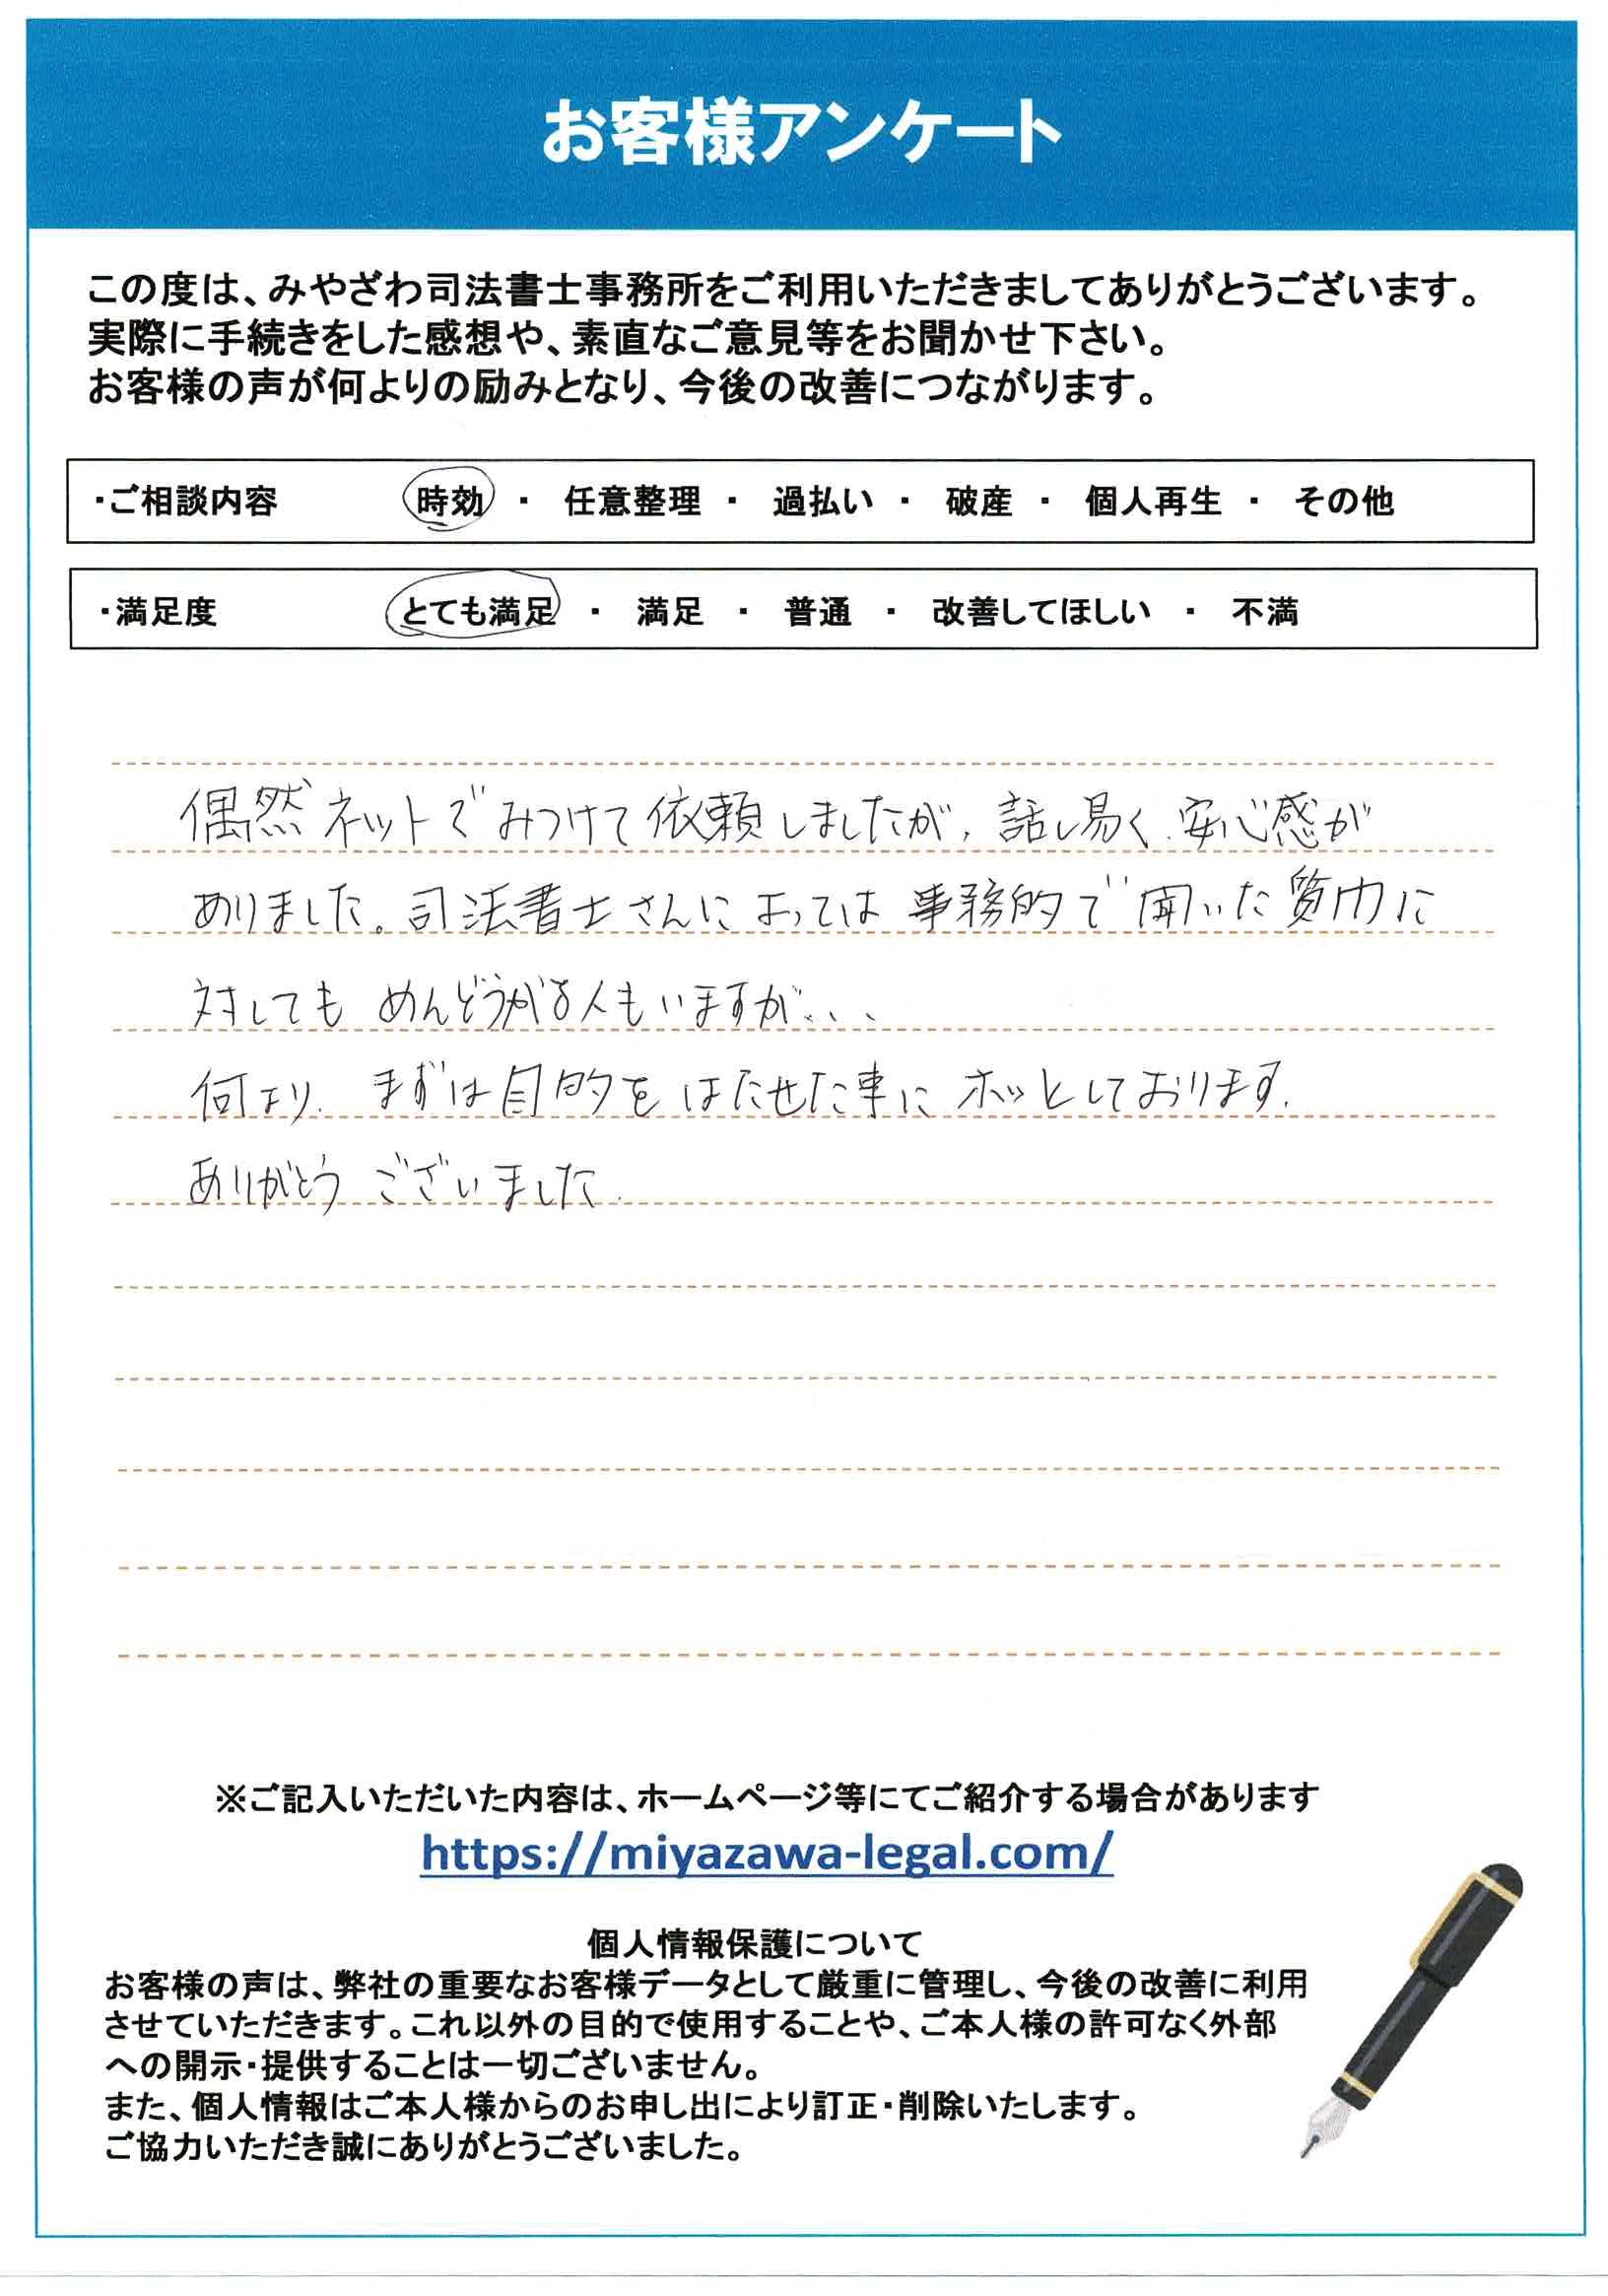 お客様アンケート
この度は、みやざわ司法書士事務所をご利用いただきましてありがとうございます。
実際に手続きをした感想や、素直なご意見等をお聞かせ下さい。
お客様の声が何よりの励みとなり、今後の改善につながります。
・ご相談内容　時効 ・ 任意整理 ・ 過払い ・ 破産 ・ 個人再生 ・ その他
・満足度　とても満足 ・ 満足 ・ 普通 ・ 改善してほしい ・ 不満
偶然ネットでみつけて依頼しましたが、話し易く、安心感が
ありました。司法書士さんによっては事務的で聞いた質問に
対してもめんどうがる人もいますが、、、
何より、まずは目的をはたせた事にホッとしております。
ありがとうございました。
※ご記入いただいた内容は、ホームページ等にてご紹介する場合があります
https://miyazawa-legal.com/
個人情報保護について
お客様の声は、弊社の重要なお客様データとして厳重に管理し、今後の改善に利用
させていただきます。これ以外の目的で使用することや、ご本人様の許可なく外部
への開示・提供することは一切ございません。
また、個人情報はご本人様からのお申し出により訂正・削除いたします。
ご協力いただき誠にありがとうございました。